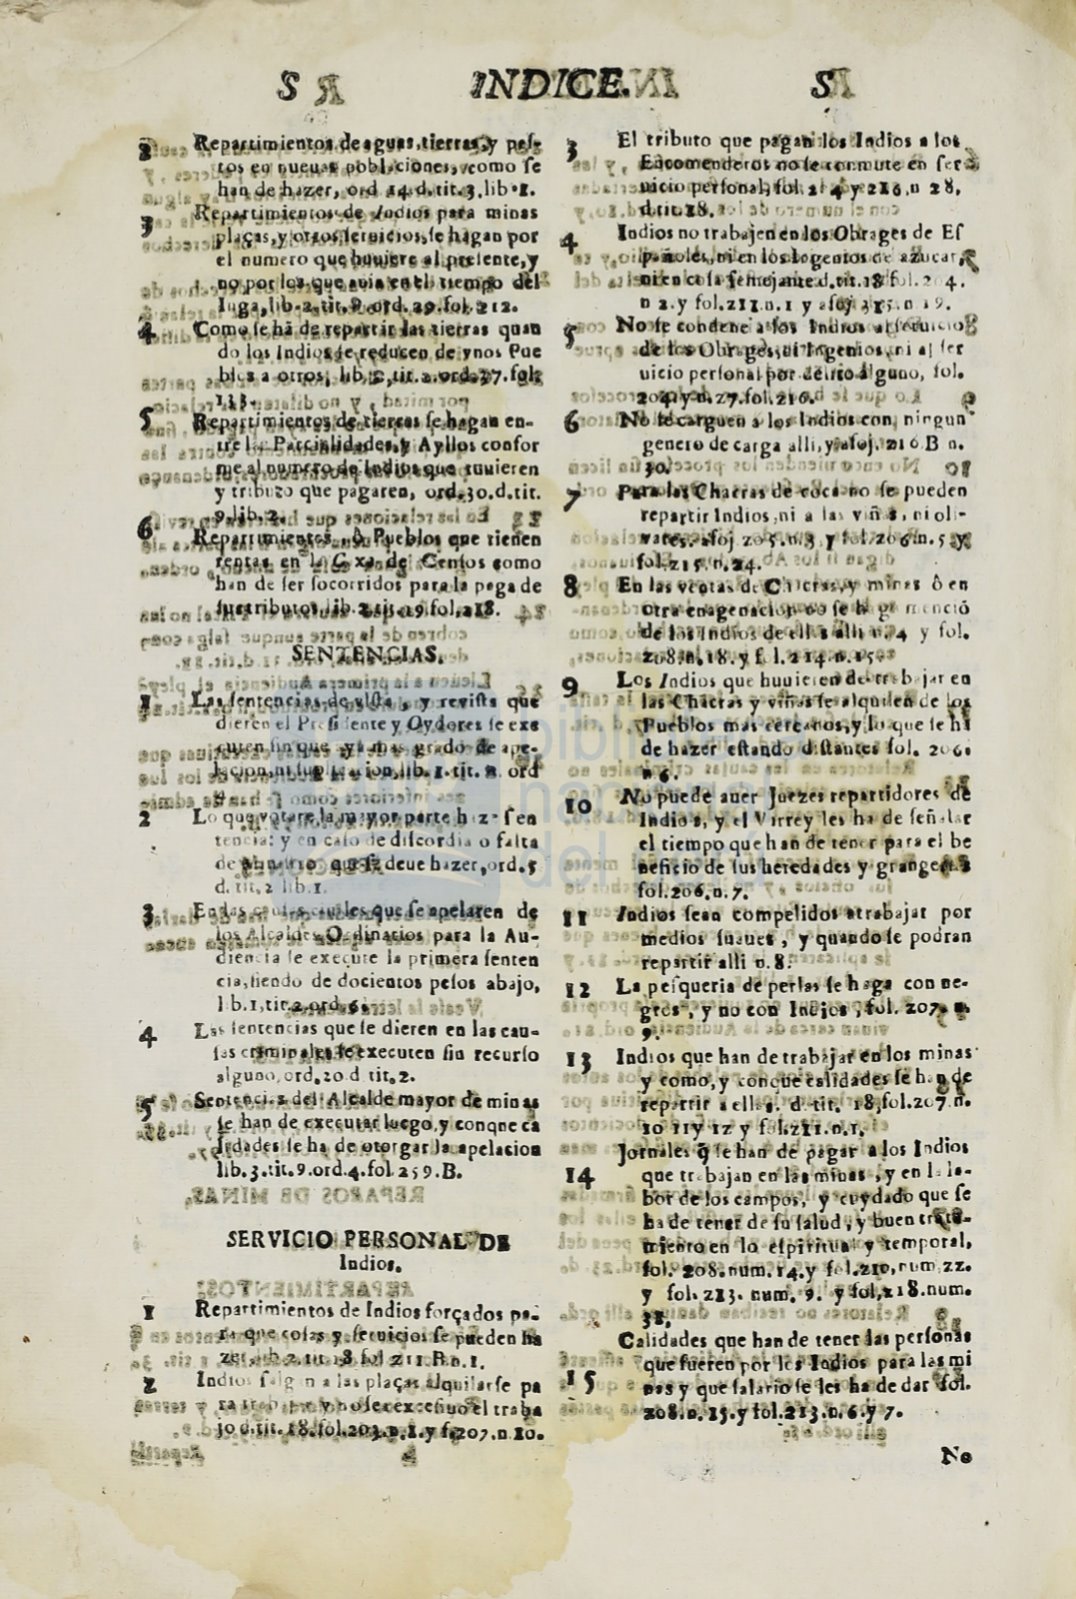 S INDICE. S
2 Repartimientos de aguas, tierras, y pas-
tos en nueuas poblaciones, como se
han de hazer, ord 14. d. tit. 3. lib. 1.
3 Repartimientos de Indios para minas
plaças, y otros seruicios, se hagan por
el numero que huuiere al presente, y
no por los que auia en el tiempo del
Iuga, lib. 2. tit. 9. ord. 29. fol. 212.
4 Como se hā de repartir las tierras quan
do los Indios se reducen de vnos Pue
blos a otros, lib. 2, tit. 2. ord. 27. fol.
5 Repartimientos de tierras se hagan en-
tre las Parcialidades, y Ayllos confor
me al numero de Indios que tuuieren
y tributo que pagaren, ord. 30. d. tit.
9. lib. 2.
6 Repartimientos, ò Pueblos que tienen
rentas en la Caxa de Censos como
han de ser socorridos para la paga de
sus tributos, lib. 2. tit. 19. fol. 218.
SENTENCIAS.
1 Las sentencias de vista, y reuista que
dieren el Presidente y Oydores se exe
cuten sin que aya mas grado de ape-
lacion, ni suplicacion, lib. 1. tit. 2. ord
2 Lo que votare la mayor parte haze sen
tencia: y en caso de discordia o falta
de numero que se deue hazer, ord. 5
d. tit, 2 lib. 1.
3 En las causas ciuiles que se apelaren de
los Alcaldes Ordinarios para la Au-
diencia se execute la primera senten
cia, siendo de docientos pesos abajo,
lib. 1, tit. 2. ord. 6.
4 Las sentencias que se dieren en las cau-
sas criminales se executen sin recurso
alguno, ord. 20 d. tit. 2.
5 Sentencias del Alcalde mayor de minas
se han de executar luego, y conque ca
lidades se ha de otorgar la apelacion
lib. 3. tit. 9. ord. 4. fol. 259. B.
SERVICIO PERSONAL DE
Indios.
1 Repartimientos de Indios forçados pa-
ra que cosas y seruicios se pueden ha
zer, lib. 2. tit. 18. fol. 211. B. n. 1.
2 Indios salgan a las plaças alquilarse pa
ra trabajar y no sea excessiuo el traba
jo d. tit. 18. fol. 203. n. 1. y f. 207. n 10.
3 El tributo que pagan los Indios a los
Encomenderos no se commute en ser
uicio personal, fol. 214 y 216. n 28.
d. tit. 18.
4 Indios no trabajen en los Obrages de Es
pañoles, ni en los Ingenios de azucar,
ni en cosa semejante d. tit. 18 fol. 204.
n 2. y fol. 211. n. 1 y a foj 215. n 19.
5 No se condene a los Indios al seruicio
de los Obrages, ni Ingenios, ni al ser
uicio personal por delito alguno, fol.
204. y n. 27. fol. 216.
6 No se carguen a los Indios con ningun
genero de carga alli, y a foj. 216. B n.
30.
7 Para las Chacras de coca no se pueden
repartir Indios, ni a las viñas, ni oli-
vares. a foj 205. n. 3 y fol. 206. n. 5. y
fol. 215. n. 24.
8 En las ventas de Chacras, y minas ò en
otra enagenacion no se haga menció
de los Indios de ellas alli n. 4 y fol.
208. n. 18. y fol. 214. n. 15.
9 Los Indios que huuieren de trabajar en
las Chacras y viñas se alquilen de los
Pueblos mas cercanos, y lo que se ha
de hazer estando distantes fol. 206.
n 6.
10 No puede auer Juezes repartidores de
Indios, y el Virrey les ha de señalar
el tiempo que han de tener para el be
neficio de sus heredades y grangerias
fol. 206. n. 7.
11 Indios sean compelidos a trabajar por
medios suaues, y quando se podran
repartir alli n. 8.
12 La pesqueria de perlas se haga con ne-
gros, y no con Indios, fol. 207. n.
9.
13 Indios que han de trabajar en los minas
y como, y conque calidades se han de
repartir a ellas. d. tit. 18, fol. 207. n.
10 11 y 12 y fol. 211. n. 1.
14 Jornales q̃ se han de pagar a los Indios
que trabajan en las minas, y en la la-
bor de los campos, y cuydado que se
ha de tener de su salud, y buen trata-
miento en lo espiritual y temporal,
fol. 208. num. 14. y fol. 210, num. 22.
y fol. 213. num. 9. y fol, 218. num.
15 Calidades que han de tener las personas
que fueren por los Indios para las mi
nas y que salario se les ha de dar fol.
208. n. 15. y fol. 213. n. 6. y 7.
No